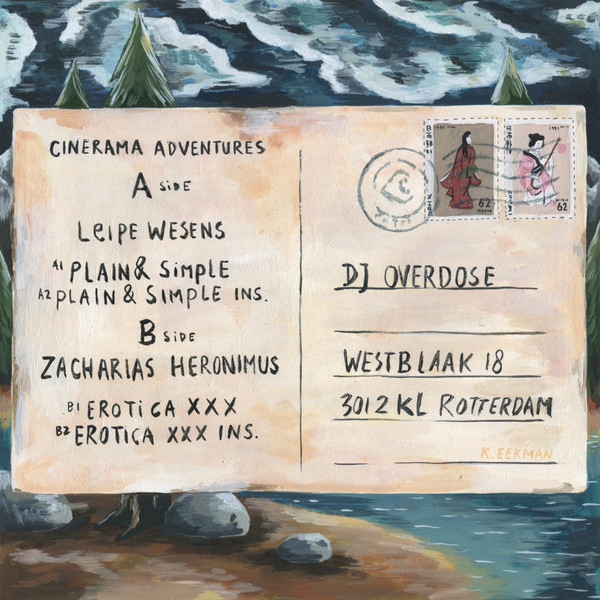 CINERAMA ADVENTURES
A SIDE
LEIPE WESENS
A1 PLAIN & SIMPLE
A2 PLAIN & SIMPLE INS.
B SIDE
ZACHARIAS HERONIMUS
B1 EROTICA XXX
B2 EROTICA XXX INS.
62
62
DJ OVERDOSE
WESTBLAAK 18
3012 KL ROTTERDAM
K. EEKMAN